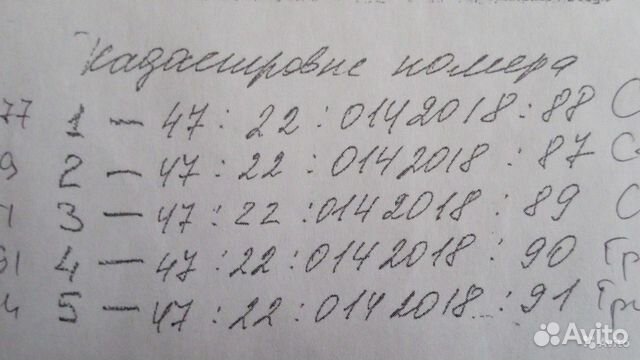 Кадастровые номера
77 1 – 47:22:0142018:88 С
9 2 – 47:22:0142018:87 С
3 – 47:22:0142018:89 С
31 4 – 47:22:0142018:90 Гр
4 5 – 47:22:0142018:91 Гри
Avito
AVITO